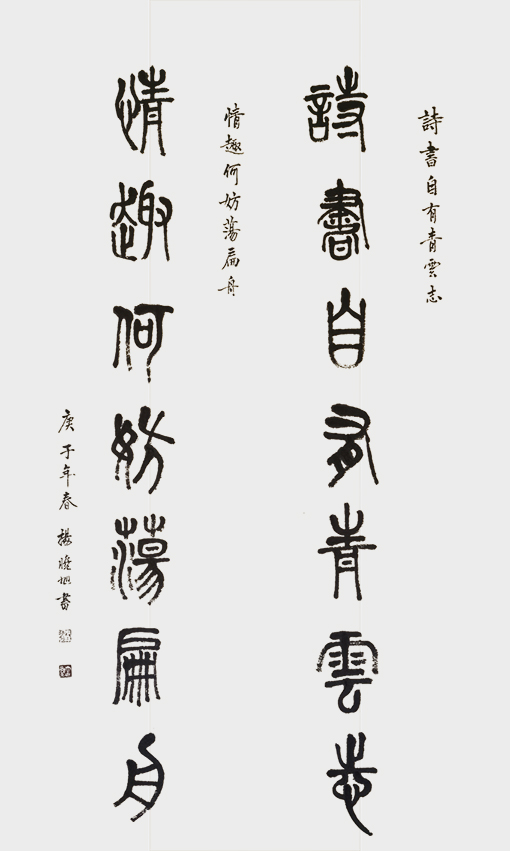 詩書自有青雲志
詩書自有青雲志
情趣何妨蕩扁舟
情趣何妨蕩扁舟
庚子年春 楊曉旭書